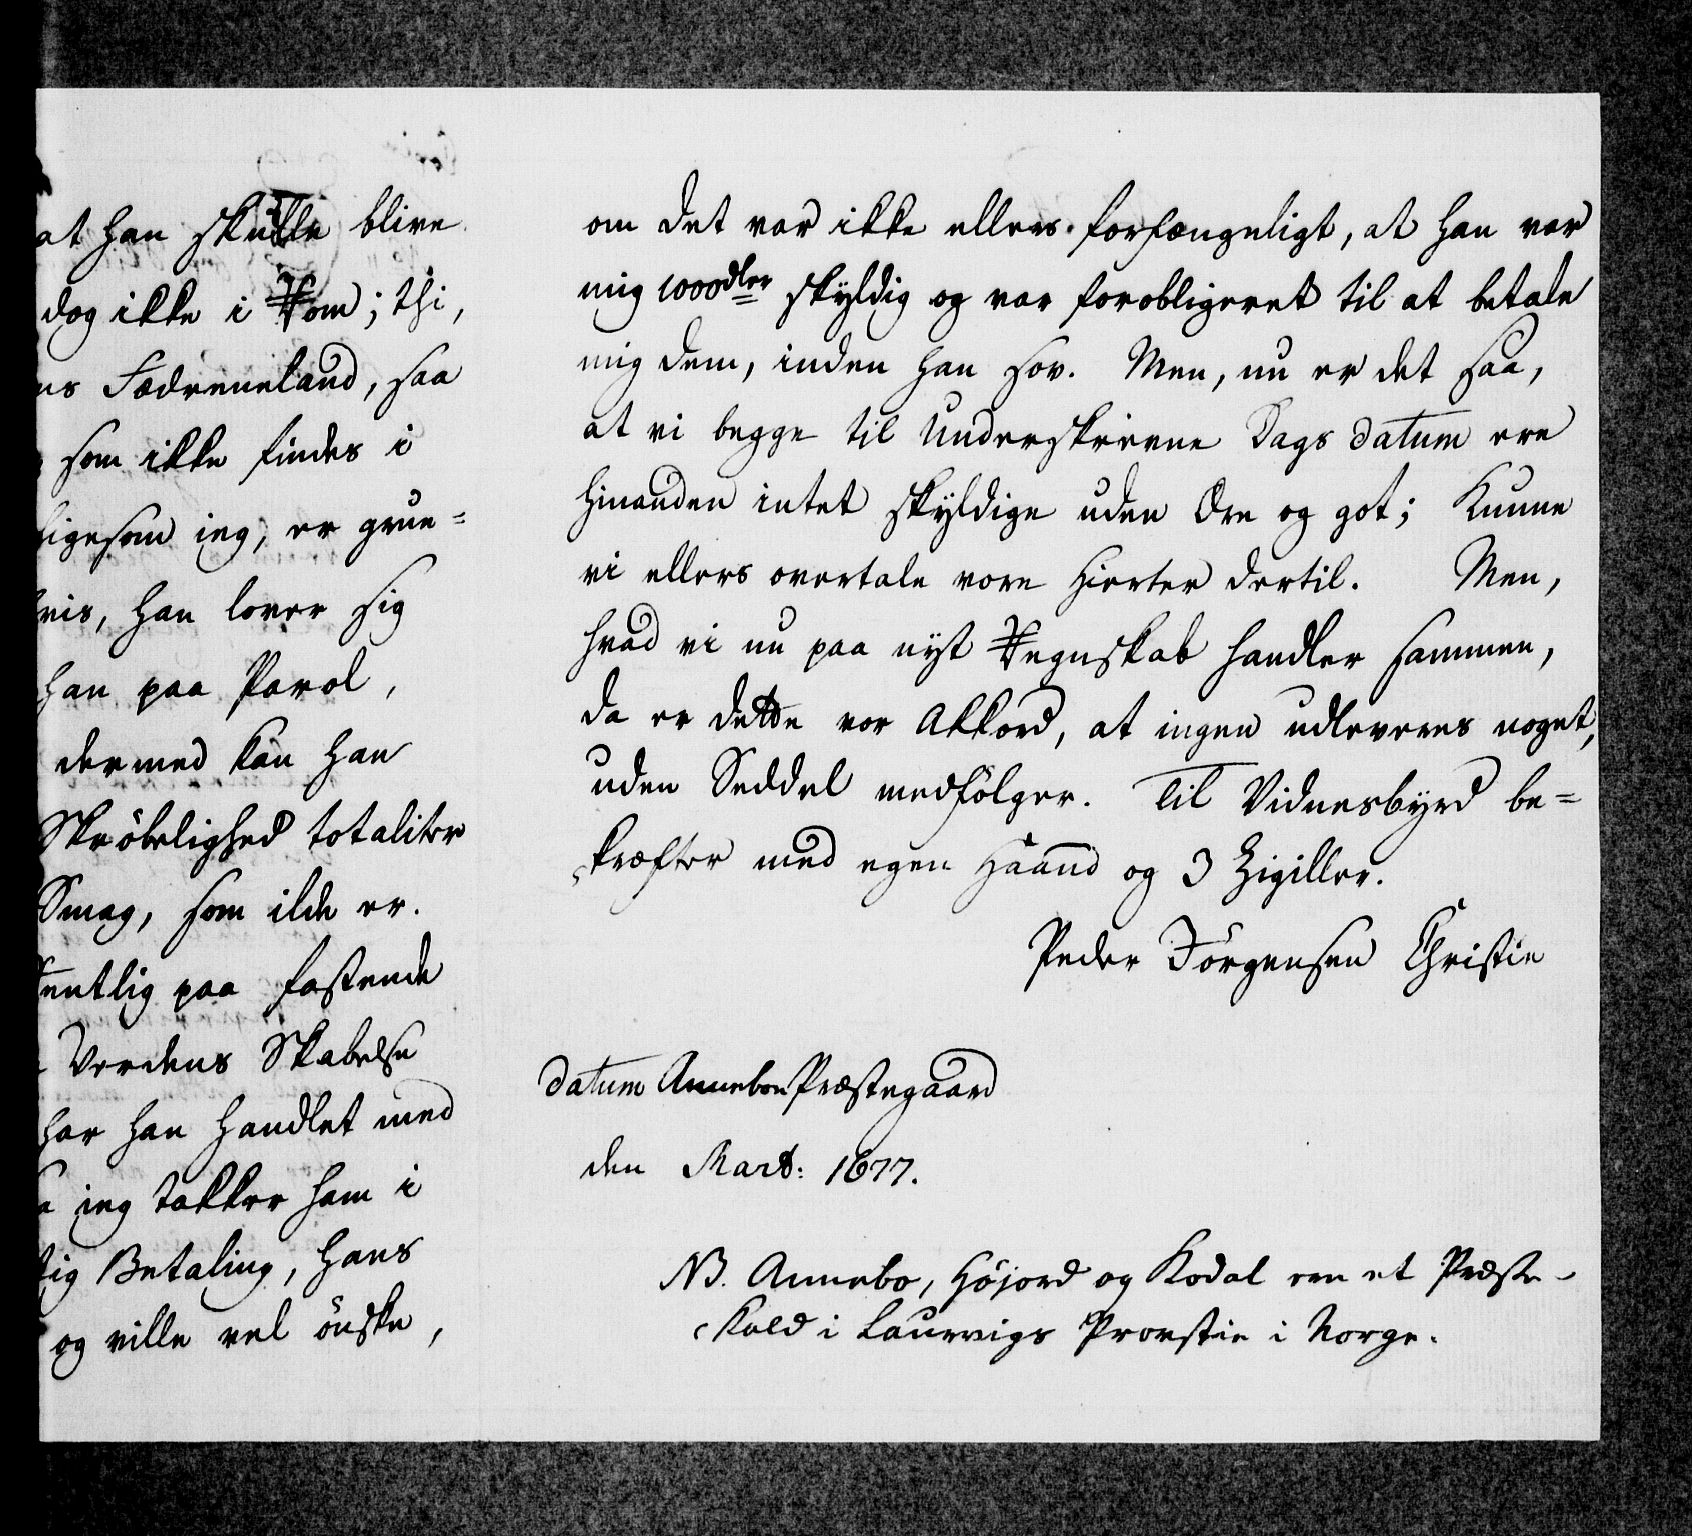 at han skulle blive
dog ikke i Rom; thi,
ns Fædreneland, saa
som ikke findes i
ligesom ieg, er grue=
vis, han lover sig
han paa Parol,
dermed kan han
Skröbelighed totaliter
Smag, som ilde er.
entlig paa fastende
Verdens Skabelse
har han handlet med
ieg takker ham i
tig Betaling, hans
og ville vel önske,
om det var ikke ellers forfængeligt, at han var
mig 1000dler skyldig og var forobligeret til at betale
mig dem, inden han sov. Men, nu er det saa,
at vi begge til underskrevne Dags datum ere
hinanden intet skyldige uden Ære og got; Kunne
vi ellers overtale vore Hierter dertil. Men,
hvad vi nu paa nyt Regnskab handler sammen,
da er dette vor Akkord, at ingen udleveres noget,
uden Seddel medfölger. Til Vidnesbyrd be=
kræfter med egen Haand og 3 Zigiller.
Peder Jörgensen Christie
datum Anneboe Præstegaard
den Mart: 1677.
NB. Annebo, Höjord og Kodal ere et Præste-
Kald i Laurvigs Provstie i Norge.